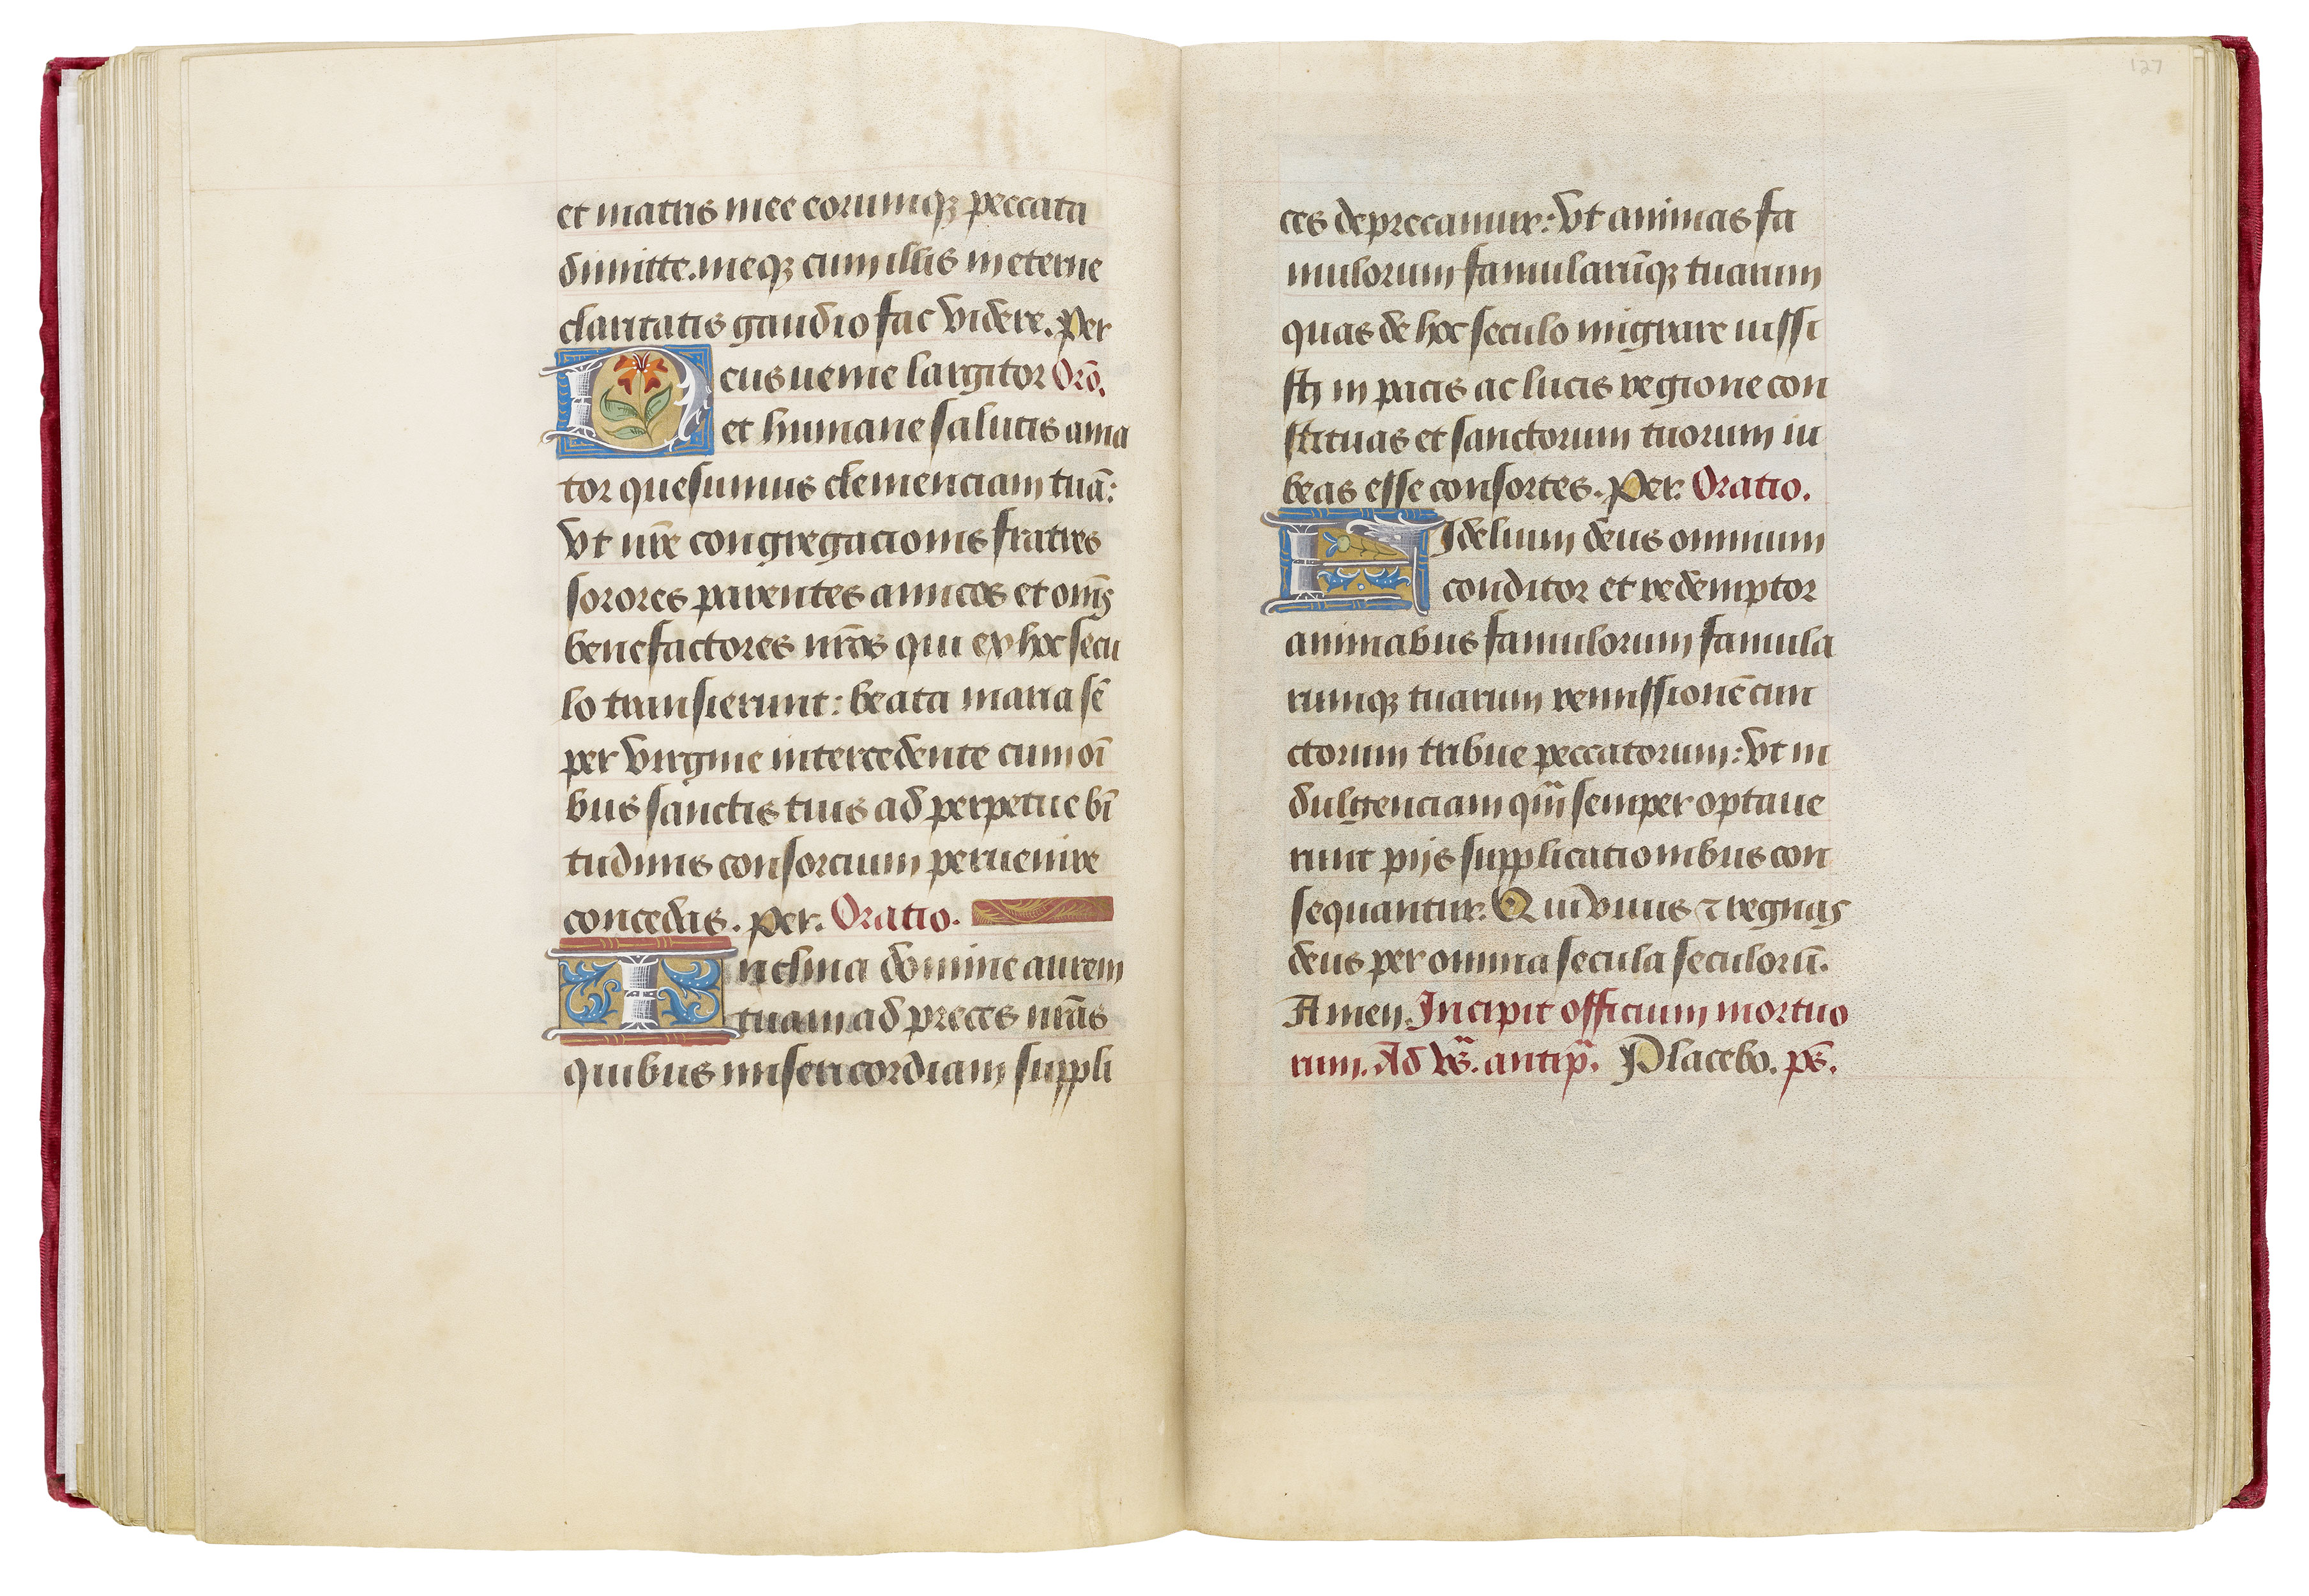 et matris mee eorumqꝫ peccata
dimitte. meqꝫ cum illis in eterne
claritatis gaudio fac videre. Per
Deus uenie largitor Orō.
et humane salutis ama
tor quesumus clemenciam tuā:
Vt nr̄e congregacionis fratres
sorores parentes amicos et om̄s
benefactores nr̄os qui ex hoc secu
lo transierunt: beata maria sē
per virgine intercedente cum oī
bus sanctis tuis ad perpetue bī
tudinis consorcium peruenire
concedas. Per. Oratio.
Inclina domine aurem
tuam ad preces nr̄as
quibus misericordiam suppli
127
ces deprecamur: Vt animas fa
mulorum famularūqꝫ tuarum
quas de hoc seculo migrare iussi
sti in pacis ac lucis regione con
stituas et sanctorum tuorum iu
beas esse consortes. Per. Oratio.
Fidelium deus omnium
conditor et redemptor
animabus famulorum famula
rumqꝫ tuarum remissionē cun
ctorum tribue peccatorum: Vt in
dulgenciam quā semper optaue
runt pijs supplicationibus con
sequantur. Qui viuis ⁊ regnas
deus per omnia secula seculorū.
Amen. Incipit officium mortuo
rum. Ad vs̄. antip̄. Placebo. ps̄.